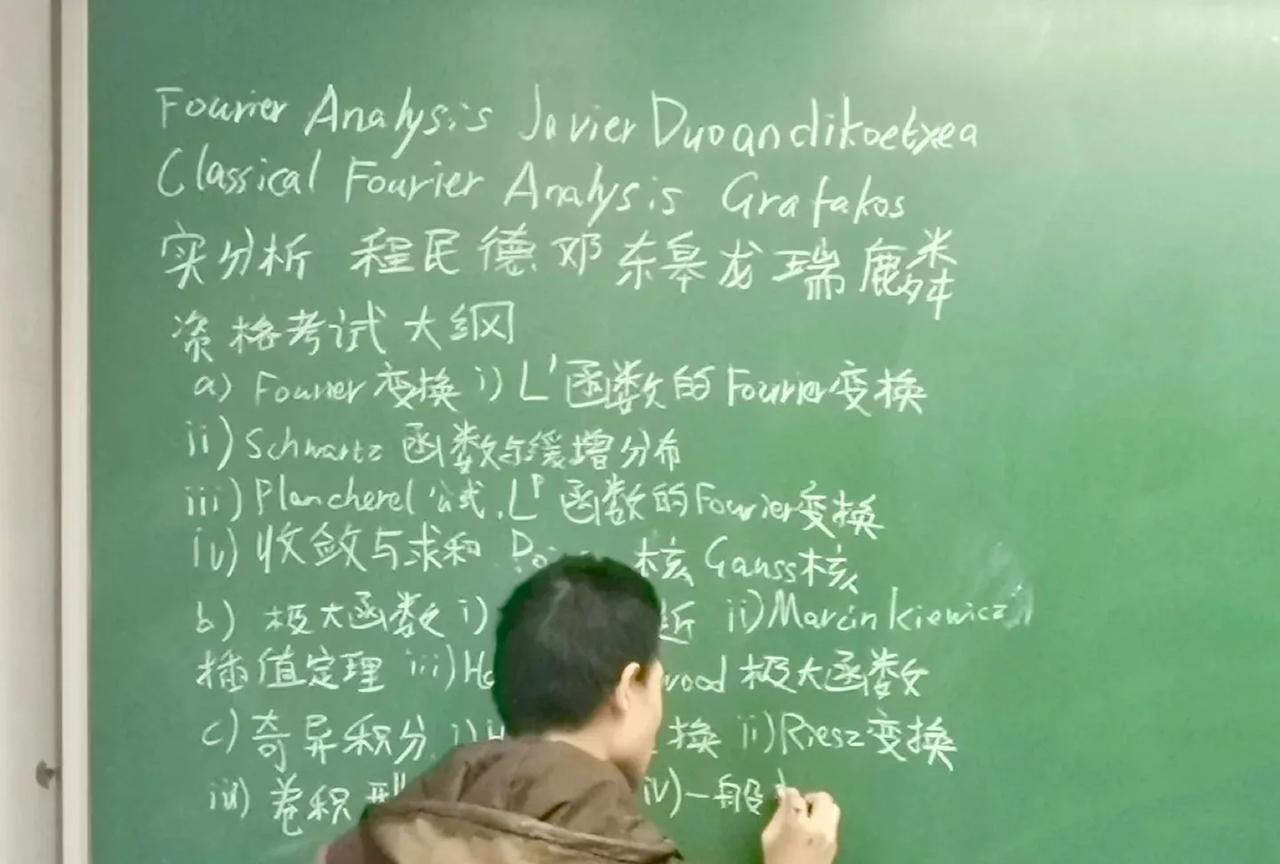 Fourier Analysis Javier Duoandikoetxea
Classical Fourier Analysis Grafakos
实分析 程民德 邓东皋 龙瑞麟
资格考试大纲
a) Fourier变换 i) L¹函数的Fourier变换
ii) Schwartz 函数与缓增分布
iii) Plancherel公式.L^p 函数的Fourier变换
iv) 收敛与求和 核 Gauss核
b) 极大函数 i) 近 ii) Marcinkiewicz
插值定理 iii) wood 极大函数
c) 奇异积分 i) H 换 ii) Riesz变换
iii) 卷积型 iv) 一般